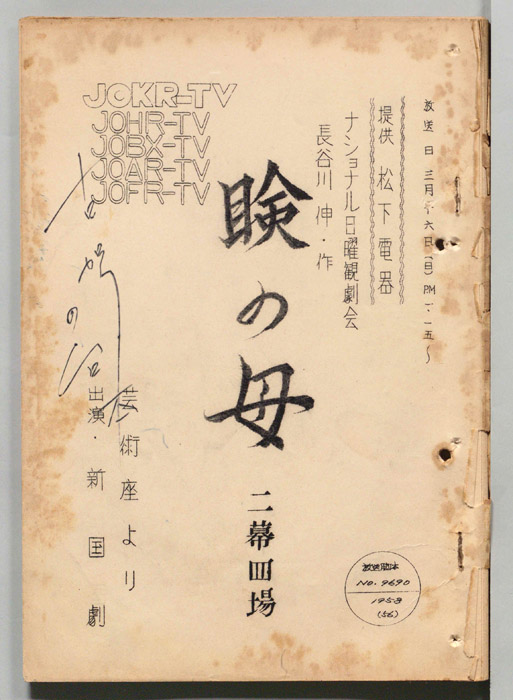 放送日 三月十六日(日) PM 一・一五〜
提供 松下電器
ナショナル日曜観劇会
長谷川 伸・作
瞼の母
二幕四場
JOKR-TV
JOHR-TV
JOBX-TV
JOAR-TV
JOFR-TV
芸術座より
出演・新国劇
放送台本
No. 9690
1958
(56)